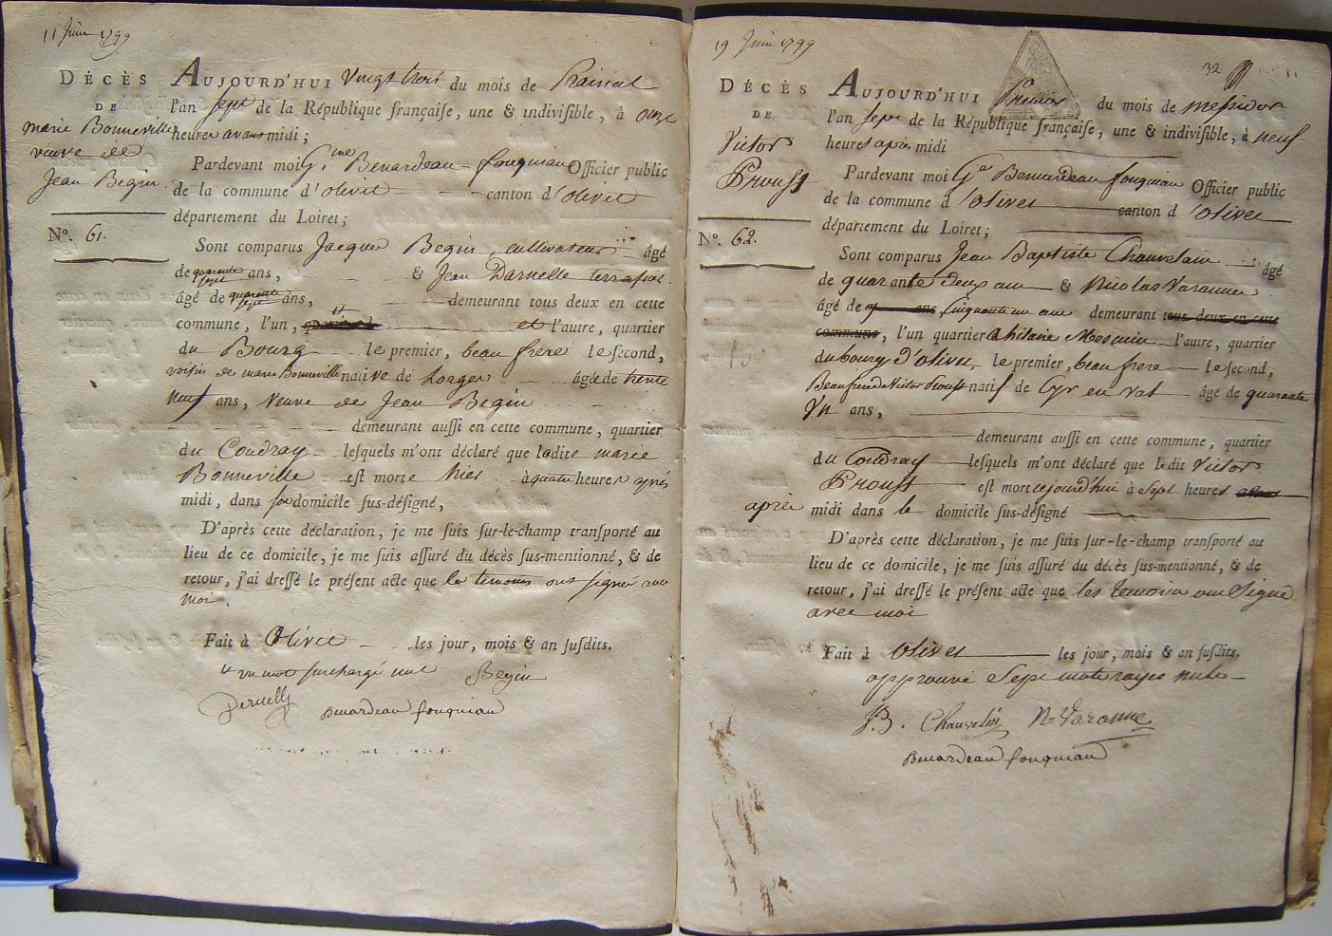 11 Juin 1799
DÉCÈS
DE
marie Bonneville
veuve de
Jean Begin
N°. 61.
AUJOURD'HUI Vingt trois du mois de Prairial
l'an sept de la République françaiſe, une & indiviſible, à onze
heures avant midi;
Pardevant moi G.me Benardeau fouquiau Officier public
de la commune d'olivet canton d'olivet
département du Loiret;
Sont comparus Jacques Begin, cultivateur âgé
de quarante sept ans, & Jean Darnelle
âgé de quarante sept ans, demeurant tous deux en cette
commune, l'un, et l'autre, quartier
du Bourg le premier, beau frere le ſecond,
voisin de marie Bonneville native de Lorges âgée de trente
neuf ans, veuve de Jean Begin
demeurant auſſi en cette commune, quartier
du Coudray leſquels m'ont déclaré que ladite marie
Bonneville est morte hier à quatre heures après
midi, dans ſon domicile ſus-déſigné,
D'après cette déclaration, je me ſuis ſur-le-champ tranſporté au
lieu de ce domicile, je me ſuis aſſuré du décès ſus-mentionné, & de
retour, j'ai dreſſé le préſent acte que les temoins ont signé avec
moi.
Fait à Olivet les jour, mois & an ſuſdits.
un mot surchargé nul Begin
Benardeau fouquiau
19 Juin 1799
32
DÉCÈS
DE
Victor
Proust
N°. 62.
AUJOURD'HUI Premier du mois de messidor
l'an sept de la République françaiſe, une & indiviſible, à neuf
heures après midi
Pardevant moi G.me Benardeau fouquiau Officier public
de la commune d'olivet canton d'olivet
département du Loiret;
Sont comparus Jean Baptiste Chauvelain âgé
de quarante deux ans & Nicolas Varanne
âgé de cinquante un ans demeurant tous deux en cette
commune, l'un quartier St hilaire Mesmin l'autre, quartier
du bourg d'olivet, le premier, beau frere le ſecond,
Beau frere de Victor Proust natif de Cyr en Val âgé de quarante
Un ans,
demeurant auſſi en cette commune, quartier
du Coudray leſquels m'ont déclaré que ledit Victor
Proust est mort cejourd'hui à Sept heures avant
après midi dans le domicile ſus-déſigné
D'après cette déclaration, je me ſuis ſur-le-champ tranſporté au
lieu de ce domicile, je me ſuis aſſuré du décès ſus-mentionné, & de
retour, j'ai dreſſé le préſent acte que les temoins ont Signé
avec moi
Fait à Olivet les jour, mois & an ſuſdits.
approuvé Sept mots rayés nuls
J.B. Chauvelin N Varanne
Benardeau fouquiau